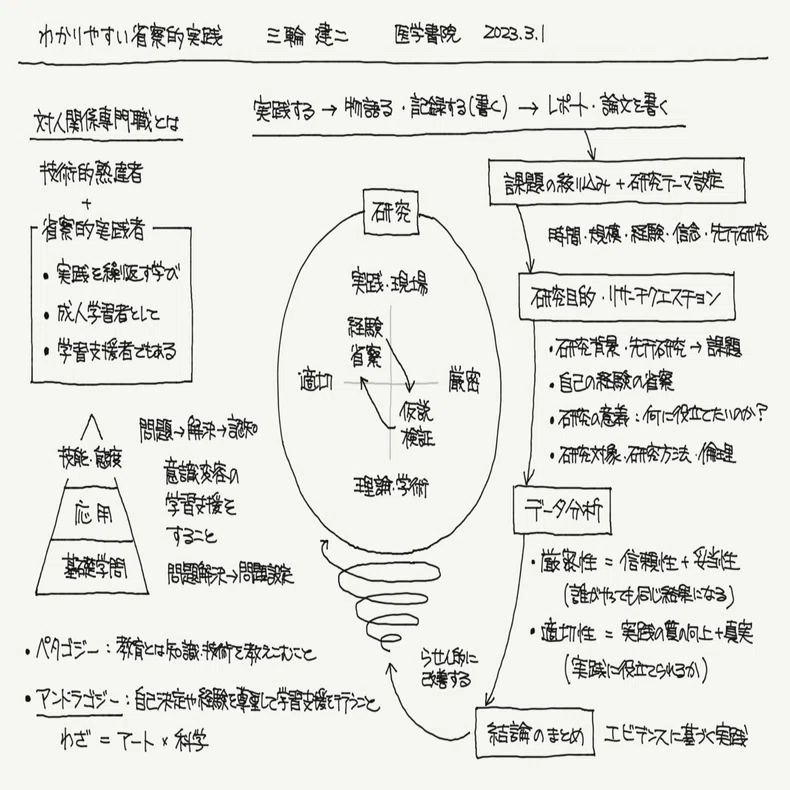 わかりやすい省察的実践 三輪 建二 医学書院 2023.3.1
対人関係専門職とは
技術的熟達者
+
省察的実践者
・実践を繰り返す学び
・成人学習者として
・学習支援者でもある
技能・態度
応用
基礎学問
問題→解決→認知
意識変容の
学習支援を
すること
問題解決→問題設定
・ペタゴジー：教育とは知識・技術を教えこむこと
・アンドラゴジー：自己決定や経験を尊重して学習支援を行うこと
わざ = アート × 科学
実践する → 物語る・記録する(書く) → レポート・論文を書く
研究
実践・現場
経験
省察
適切
厳密
仮説
検証
理論・学術
らせん的に
改善する
課題の絞り込み + 研究テーマ設定
時間・規模・経験・信念・先行研究
研究目的・リサーチクエスチョン
・研究背景・先行研究 → 課題
・自己の経験の省察
・研究の意義：何に役立てたいのか？
・研究対象・研究方法・倫理
データ分析
・厳密性 = 信頼性 + 妥当性
(誰がやっても同じ結果になる)
・適切性 = 実践の質の向上 + 真実
(実践に役立てられるか)
結論のまとめ
エビデンスに基づく実践